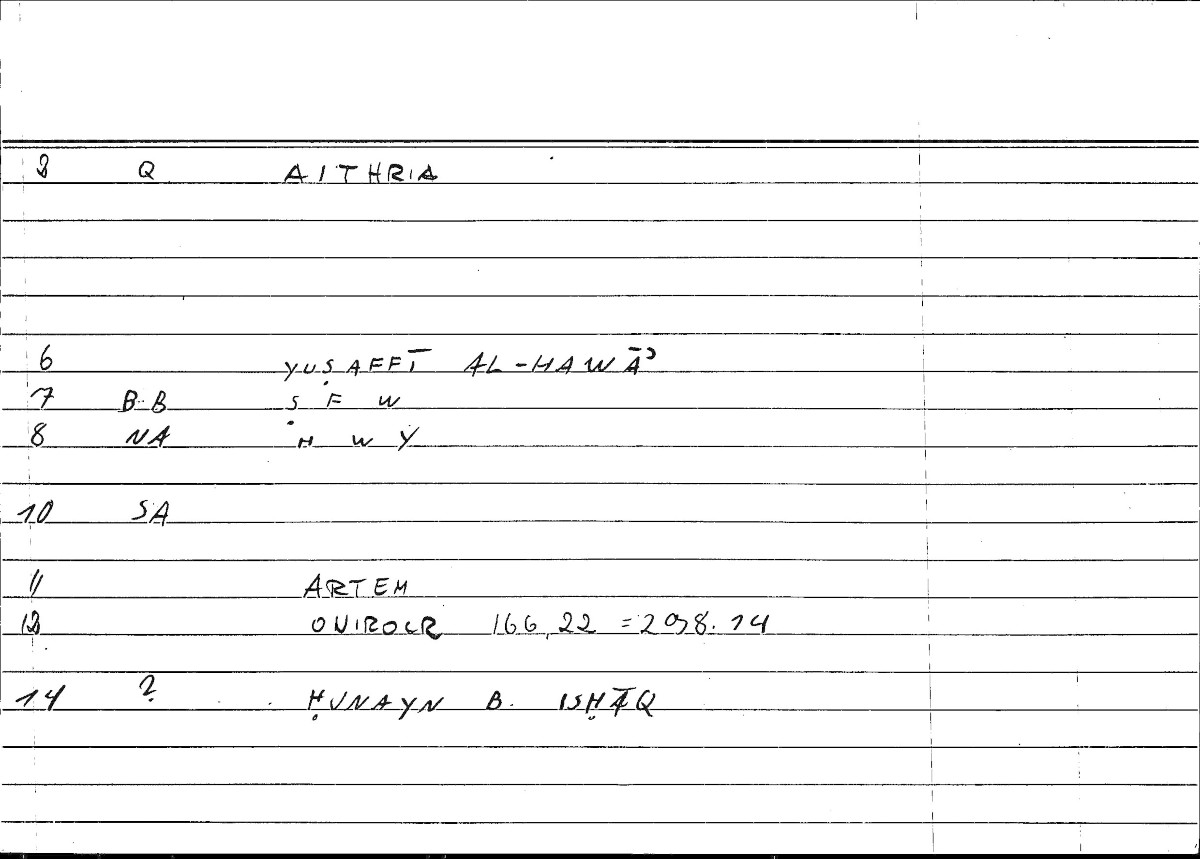 2 Q AITHRIA
6 YUṢAFFĪ AL-HAWĀʾ
7 B.B Ṣ F W
8 NA H W Y
10 SA
11 ARTEM
12 ONIROCR 166,22 = 298.14
14 ? ḤUNAYN B. ISḤĀQ